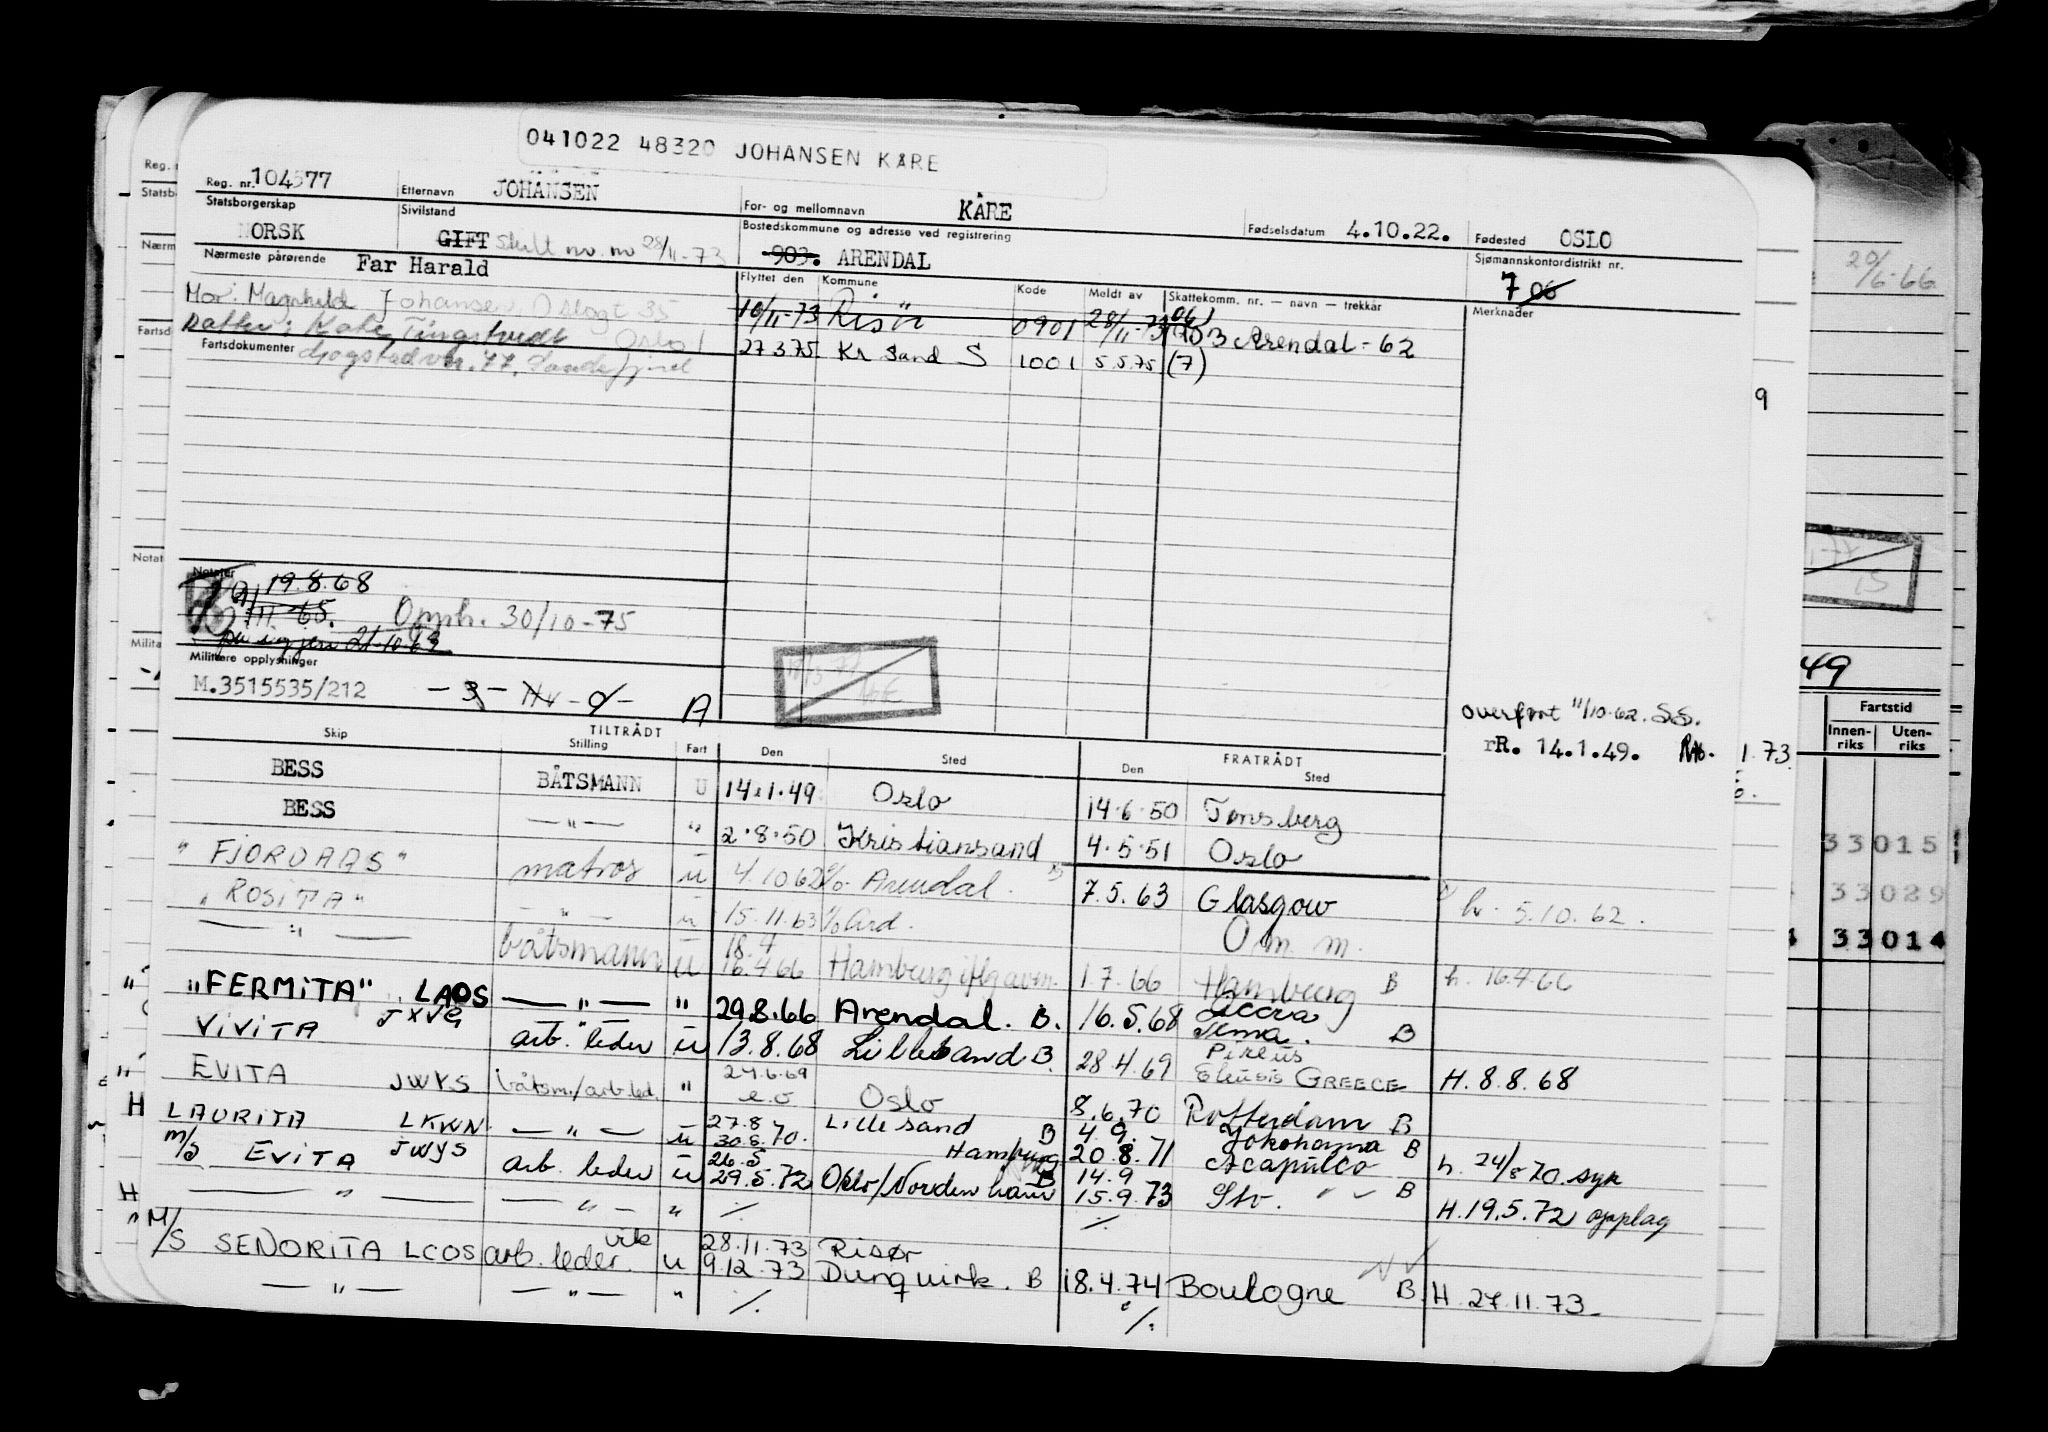 041022 48320 JOHANSEN KÅRE
Reg. nr. 104577 Etternavn JOHANSEN For- og mellomnavn KÅRE Fødselsdatum 4.10.22. Fødested OSLO
Statsborgerskap NORSK Sivilstand GIFT 28/11-73 Bostedskommune og adresse ved registrering 903. ARENDAL Sjømannskontordistrikt nr. 7 06
Nærmeste pårørende Far Harald Flyttet den Kommune Kode Meldt av Skattekomm. nr. — navn — trekkår Merknader
Mor: Magnhild Johansen, Oslogt 35 16/11-73 Risør 0901 28/11-73 903 Arendal - 62
Datter: Kate Tingstvedt Oslo 1
Fartsdokumenter 77, Sandefjord 27375 Kr sand S 1001 5.5.75 (7)
Notater 19.8.68
65. Omh. 30/10-75
21.10.63
Militære opplysninger
M.3515535/212 - 3 - A
overført 11/10.62. SS.
rR. 14.1.49.
TILTRÅDT FRATRÅDT
Skip Stilling Fart Den Sted Den Sted
BESS BÅTSMANN U 14.1.49 Oslo 14.6.50 Tønsberg
BESS — " — " 2.8.50 Kristiansand 4.5.51 Oslo
"FJORDAAS" matros u 4.10 62 % Arendal. 7.5.63 Glasgow h. 5.10.62.
"ROSITA" — " — u 15.11.63 % Ard. O m. m.
— " — båtsmann u 18.4 16.4 66 Hamburg 1.7.66 Hamburg B h. 16.4.66
"FERMITA" LAOS — " — " 29.8.66 Arendal. B. 16.5.68 Accra Tema. B
VIVITA JXVG arb. leder u 13.8.68 Lillesand B. 28.4.69 Pireus Eleusis GREECE H. 8.8.68
EVITA JWYS båtsm./arb.led. " 24.6.69 e.o Oslo 8.6.70 Rotterdam B
LAURITA LKWN — " — u 27.8 30.8.70. Lillesand B Hamburg 4.9. 20.8.71 Yokohama Acapulco B h. 24/8 70. syk
M/S EVITA JWYS arb. leder u 26.5 29.5.72 Oslo/Nordenham B 14.9 15.9.73 Stv. " - B H. 19.5.72 opplag
— " — — " — " % %
M/S SENORITA LCOS arb. leder. vik u 28.11.73 9.12.73 Risør Dunquirk. B 18.4.74 Boulogne B H. 27.11.73
— " — — " — " % %
20/6-66
9
49
Fartstid
Innenriks Utenriks
1.73
33015
33029
33014